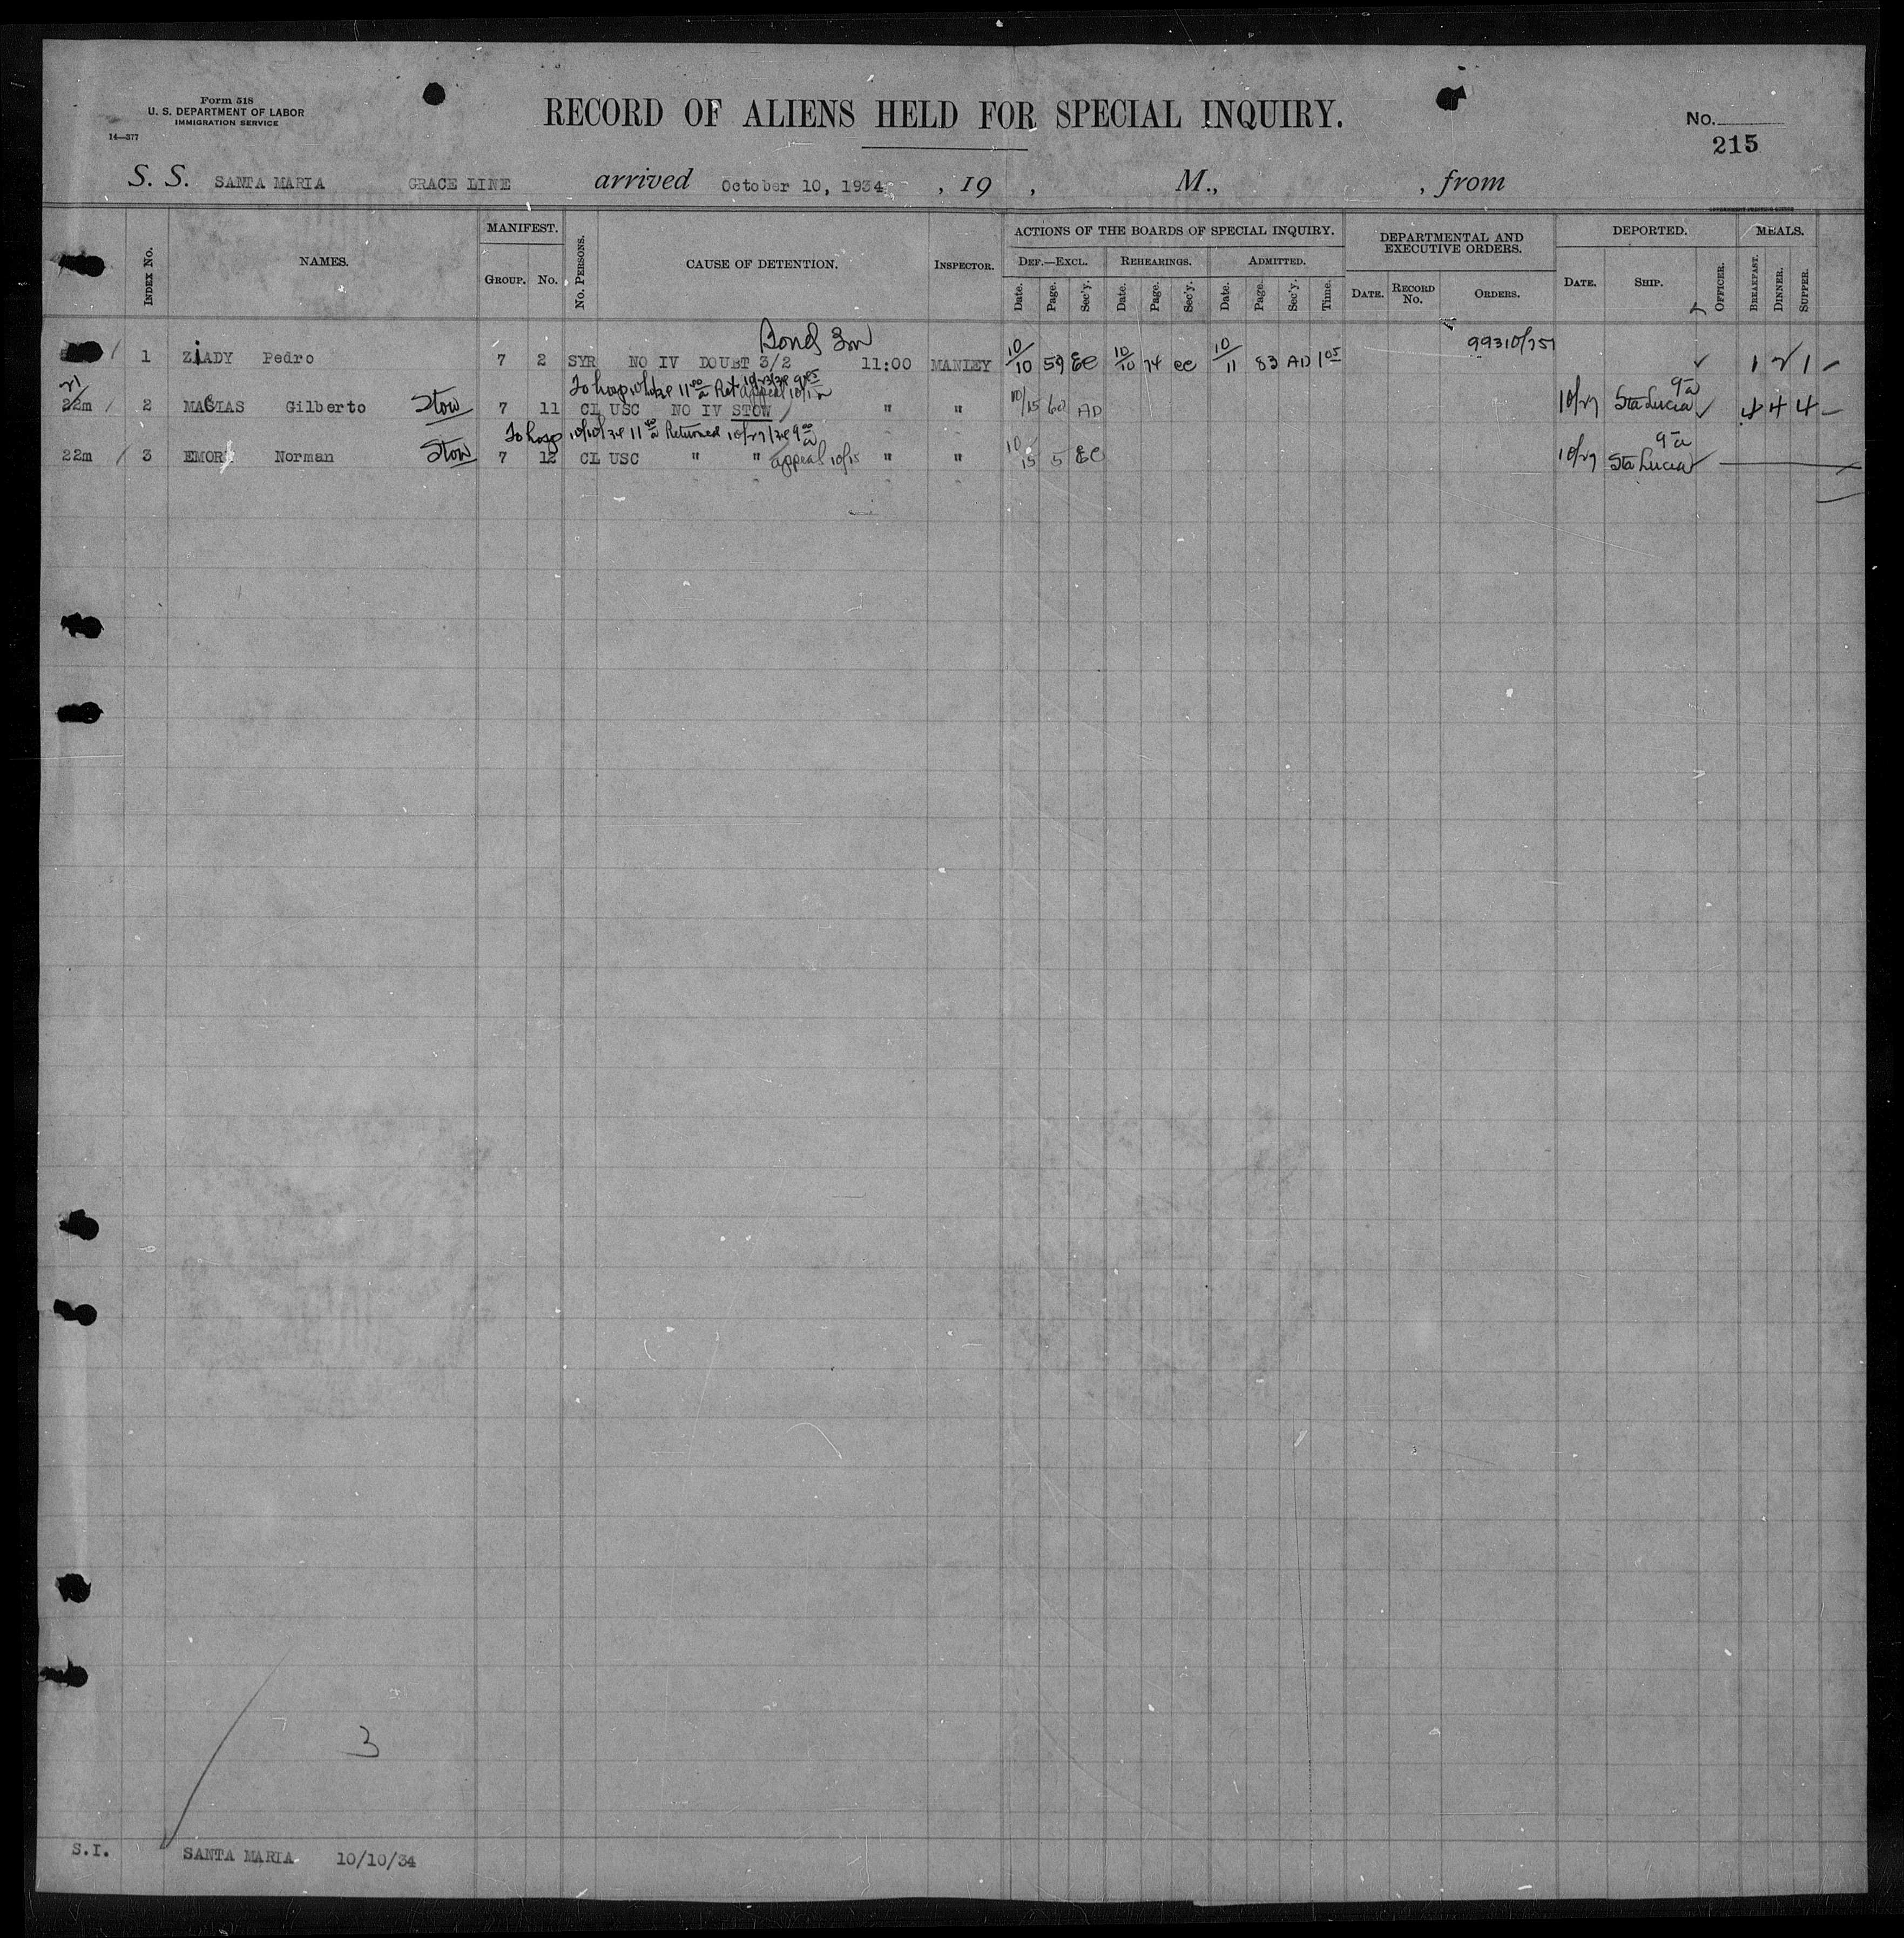 Form 518
U. S. DEPARTMENT OF LABOR
IMMIGRATION SERVICE
14—377
RECORD OF ALIENS HELD FOR SPECIAL INQUIRY.
No.
215
S. S. SANTA MARIA GRACE LINE arrived October 10, 1934 , 19 , M., , from
INDEX No. NAMES. MANIFEST. GROUP. No. No. PERSONS. CAUSE OF DETENTION. INSPECTOR. ACTIONS OF THE BOARDS OF SPECIAL INQUIRY. DEPARTMENTAL AND EXECUTIVE ORDERS. DEPORTED. MEALS.
DEF.—EXCL. REHEARINGS. ADMITTED.
Date. Page. Sec'y. Date. Page. Sec'y. Date. Page. Sec'y. Time. DATE. RECORD No. ORDERS. DATE. SHIP. OFFICER. BREAKFAST. DINNER. SUPPER.
Bond 3m
99310/751
1 ZIADY Pedro 7 2 SYR NO IV DOUBT 3/2 11:00 MANLEY 10/10 59 EC 10/10 74 EC 10/11 83 AD 1 05 1 2 1
To hosp 11 Ret appeal
22m 2 MACIAS Gilberto Stow 7 11 CL USC NO IV STOW " " 10/15 60 AD 10/27 Sta Lucia 9 a 4 4 4
To hosp 10/10/34 11 Returned 10/27/34 9 00 a
22m 3 EMORY Norman Stow 7 12 CL USC " " appeal 10/15 " " 10/15 5 EC 10/27 Sta Lucia 9 a
3
S.I. SANTA MARIA 10/10/34